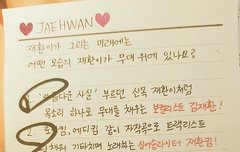 JAEHWAN
재환이가 그리는 미래에는
어떤 모습의 재환이가 무대 위에 있나요?
1. 아름다운 사실' 부르던 신목 재환이처럼
목소리 하나로 무대를 채우는 보컬리스트 김재환!
2. 로이킴, 에디킴 같이 자작곡으로 트랙리스트
채워 기타치며 노래하는 싱어송라이터 재환킴!